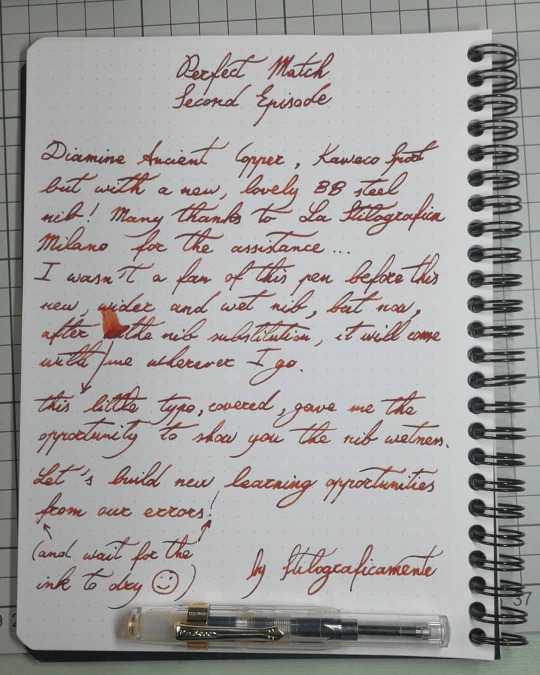 Perfect Match
Second Episode
Diamine Ancient Copper, Kaweco Sport
but with a new, lovely BB steel
nib! Many thanks to La Stilografica
Milano for the assistance...
I wasn't a fan of this pen before this
new, wider and wet nib, but now,
after the nib substitution, it will come
with me wherever I go.
this little typo, covered, gave me the
opportunity to show you the nib wetness.
Let's build new learning opportunities
from our errors!
(and wait for the
ink to dry ☺)
by Stilograficamente
37